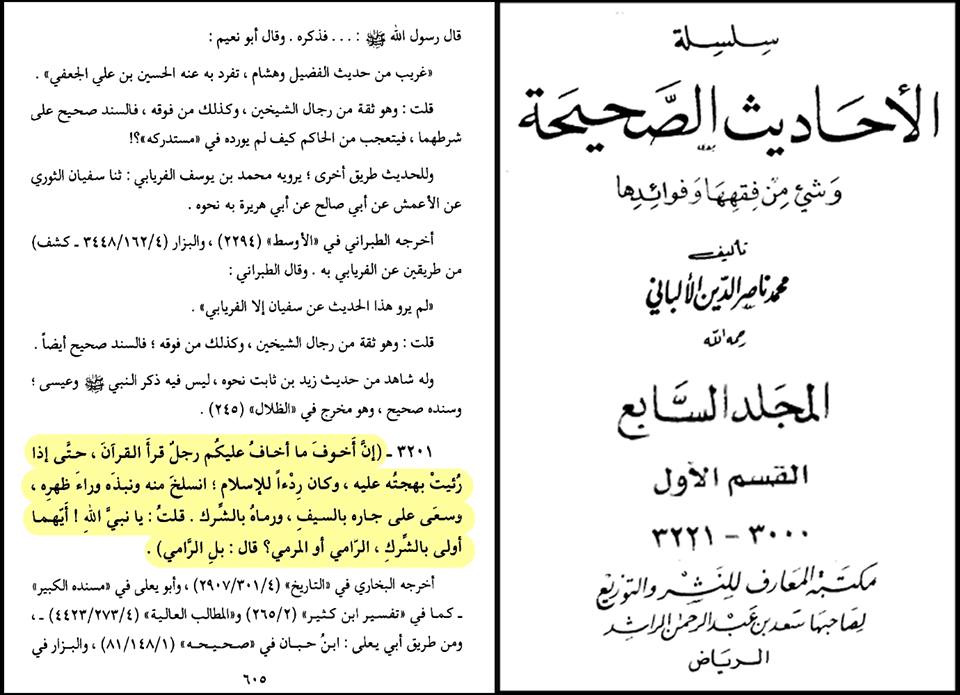 سلسلة
الأحاديث الصحيحة
وشيء من فقهها وفوائدها
تأليف
محمد ناصر الدين الألباني
رحمه الله
المجلد السابع
القسم الأول
٣٠٠٠ - ٣٢٢١
مكتبة المعارف للنشر والتوزيع
لصاحبها سعد بن عبد الرحمن الراشد
الرياض
قال رسول الله ﷺ : . . . فذكره . وقال أبو نعيم :
«غريب من حديث الفضيل وهشام ، تفرد به عنه الحسين بن علي الجعفي» .
قلت : وهو ثقة من رجال الشيخين ، وكذلك من فوقه ، فالسند صحيح على
شرطهما ، فيتعجب من الحاكم كيف لم يورده في «مستدركه»؟!
وللحديث طريق أخرى ؛ يرويه محمد بن يوسف الفريابي : ثنا سفيان الثوري
عن الأعمش عن أبي صالح عن أبي هريرة به نحوه .
أخرجه الطبراني في «الأوسط» (٢٢٩٤) ، والبزار (٣٤٤٨/١٦٢/٤ ـ كشف)
من طريقين عن الفريابي به . وقال الطبراني :
«لم يرو هذا الحديث عن سفيان إلا الفريابي» .
قلت : وهو ثقة من رجال الشيخين ، وكذلك من فوقه ؛ فالسند صحيح أيضاً .
وله شاهد من حديث زيد بن ثابت نحوه ، ليس فيه ذكر النبي ﷺ وعيسى ؛
وسنده صحيح ، وهو مخرج في «الظلال» (٢٤٥) .
٣٢٠١ ـ (إنَّ أَخوفَ ما أخافُ عليكُم رجلٌ قرأَ القرآنَ ، حتَّى إذا
رُئيتْ بهجتُه عليه ، وكان رِدْءاً للإسلامِ ؛ انسلخَ منه ونبذَه وراءَ ظهرِه ،
وسعَى على جاره بالسيفِ ، ورماهُ بالشِّرك . قلتُ : يا نبيَّ اللهِ ! أيّهما
أولى بالشِّركِ ، الرّامي أو المرمي؟ قال : بلِ الرَّامي) .
أخرجه البخاري في «التاريخ» (٢٩٠٧/٣٠١/٤) ، وأبو يعلى في «مسنده الكبير»
ـ كما في «تفسير ابن كثير» (٢٦٥/٢) و«المطالب العالية» (٤٤٢٣/٢٧٣/٤) ـ ،
ومن طريق أبي يعلى : ابنُ حبان في «صحيحه» (٨١/١٤٨/١) ، والبزار في
٦٠٥